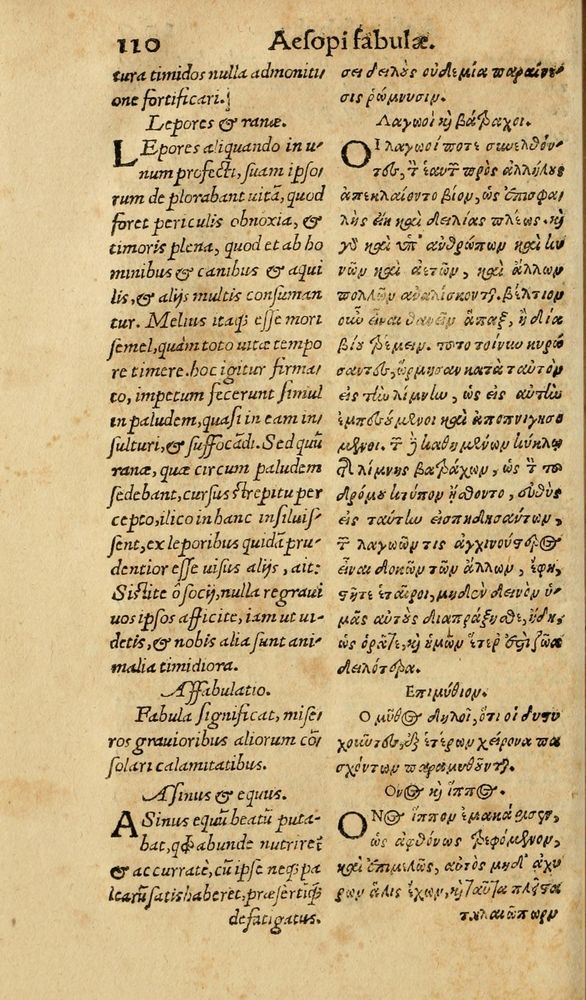 110 Aesopi fabulæ.
tura timidos nulla admoniti/
one fortificari.
Lepores & ranæ.
LEpores aliquando in u/
num profecti, suam ipso/
rum de plorabant uitā, quod
foret periculis obnoxia, &
timoris plena, quod et ab ho
minibus & canibus & aqui
lis, & alijs multis consuman
tur. Melius itaq; esse mori
semel, quàm toto uitæ tempo
re timere. hoc igitur firma/
to, impetum fecerunt simul
in paludem, quasi in eam in/
sulturi, & suffocādi. Sed quū
ranæ, quæ circum paludem
sedebant, cursus strepitu per
cepto, ilico in hanc insiluis/
sent, ex leporibus quidā pru/
dentior esse uisus alijs, ait:
Sistite ô socij, nulla re graui
uos ipsos afficite, iam ut ui/
detis, & nobis alia sunt ani/
malia timidiora.
Affabulatio.
Fabula significat, mise/
ros grauioribus aliorum cō/
solari calamitatibus.
Asinus & equus.
ASinus equū beatū puta/
bat, qđ abunde nutriret̃
& accurratè, cū ipse neq; pa
learū satis haberet, præsertiq́;
defatigatus.
σει δειλοὺς οὐδεμία παραίνε/
σις ῥώννυσιν.
Λαγωοὶ κỳ βάτραχοι.
ΟΙ λαγωοί ποτε συνελθόν/
τες, τ̃ ἑαυτ̃ πρὸς ἀλλήλους
ἀπεκλαίοντο βίον, ὡς ἐπισφα/
λὴς εἴη καὶ δειλίας πλέως. κỳ
γὸ καὶ ὑπ' ἀνθρώπων καὶ κυ/
νῶν καὶ ἀετῶν, καὶ ἄλλων
πολλῶν ἀναλίσκοντ. βέλτιον
οὖν εἶναι θανεῖν ἅπαξ, ἢ διὰ
βίου τρέμειν. τοῦτο τοίνυν κυρώ
σαντες, ὥρμησαν κατὰ ταυτὸν
εἰς τὴν λίμνην, ὡς εἰς αὐτὴν
ἐμπεσούμενοι καὶ ἀποπνιγησό
μενοι. τ̃ ἢ καθημένων κύκλῳ
τῆς λίμνης βατράχων, ὡς τ̃ τοῦ
δρόμου κτύπον ᾔσθοντο, εὐθὺς
εἰς ταύτην εἰσπηδησάντων,
τ̃ λαγωῶν τις ἀγχινούστερος
εἶναι δοκῶν τῶν ἄλλων, ἔφη,
στῆτε ἑταῖροι, μηδὲν δεινὸν ὑ/
μᾶς αὐτοὺς διαπράξησθε, ἤδη,
ὡς ὁρᾶτε, κỳ ἡμῶν ἕτερ' ἐστὶ ζῶα
δειλότερα.
Επιμύθιον.
Ο μῦθος δηλοῖ, ὅτι οἱ δυστυ
χοῦντες, ἐξ ἑτέρων χείρονα πα
σχόντων παραμυθοῦντ.
Ονος κỳ ἵππος.
ΟΝος ἵππον ἐμακάριζεν,
ὡς ἀφθόνως τρεφόμενον,
καὶ ἐπιμελῶς, αὐτὸς μηδ' ἀχύ
ρων ἅλις ἔχων, κỳ ταῦτα πλεῖστα
ταλαιπωρῶν